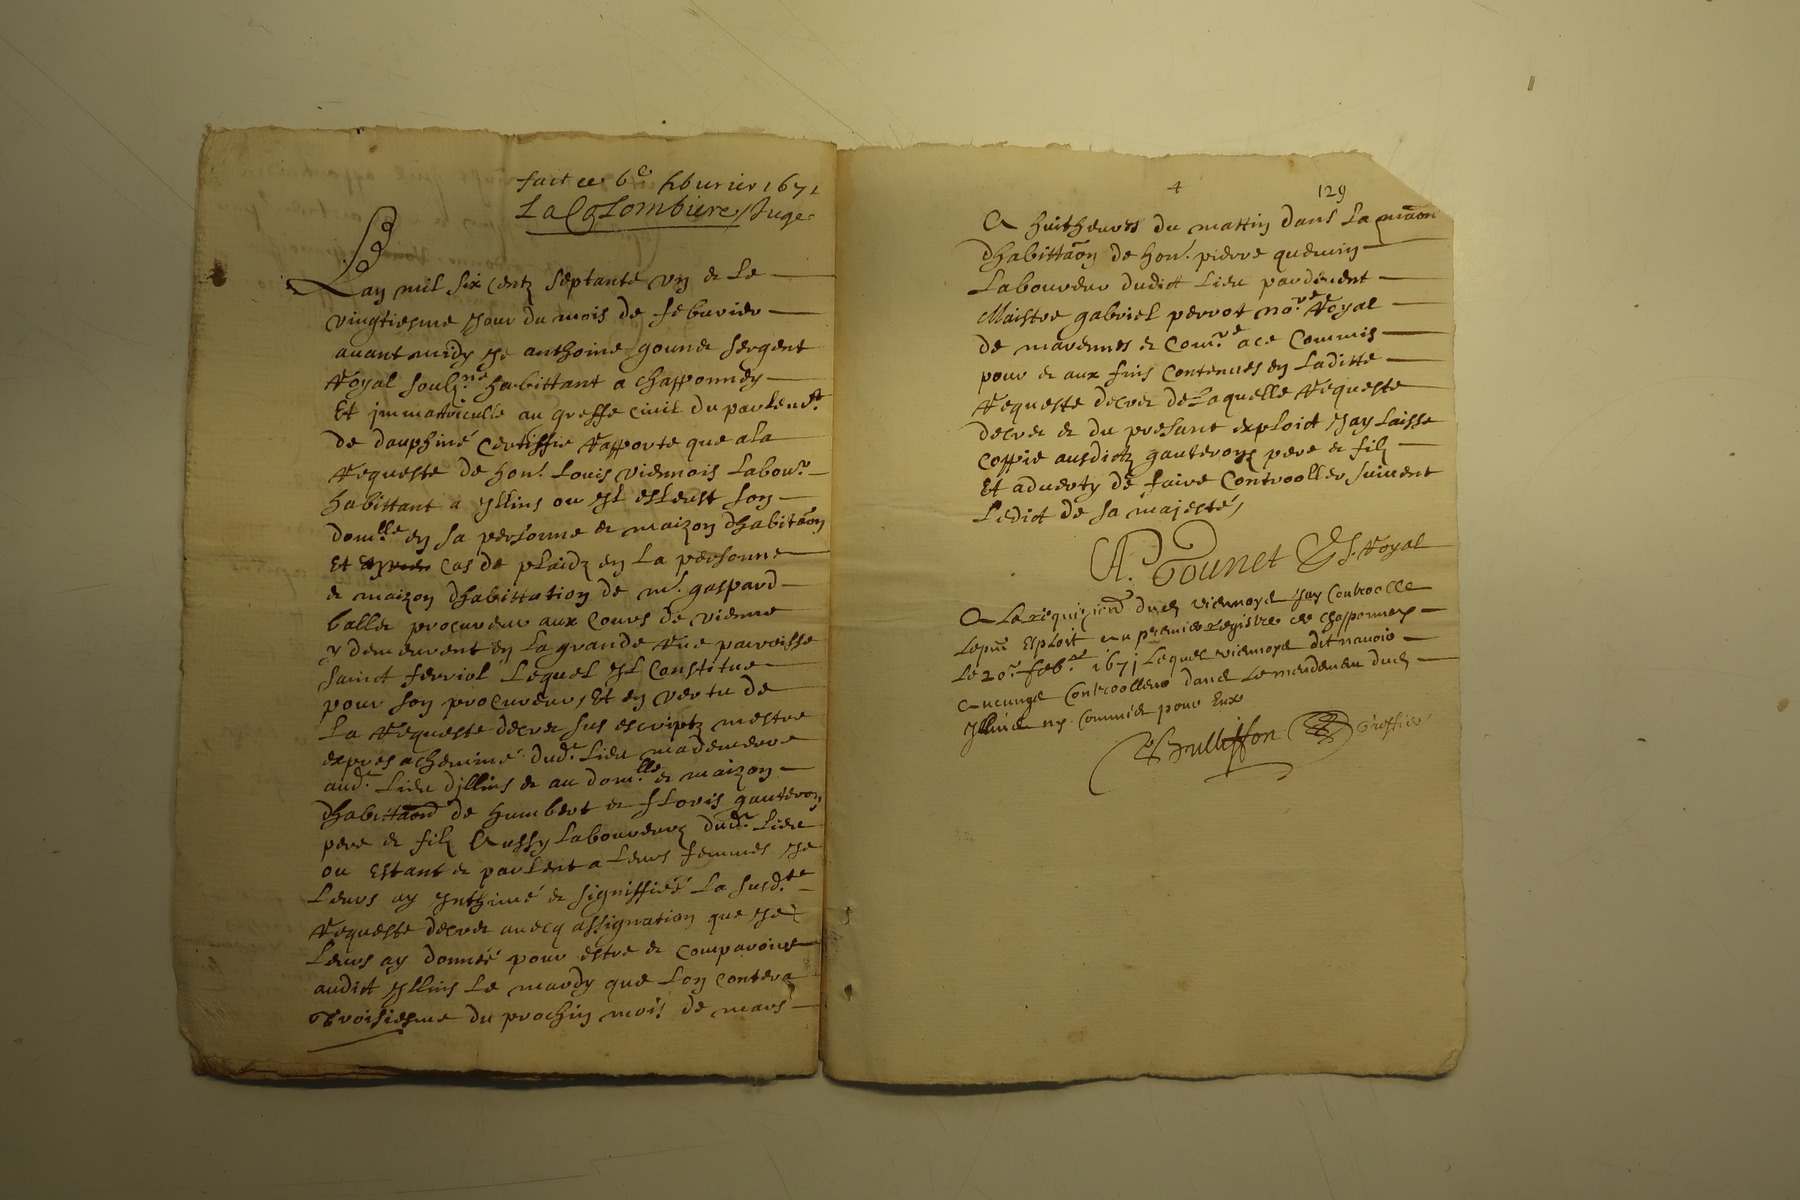 faict ce 6e febvrier 1671
La Colombiere Juge
Lan mil six centz septante un & le
vingtiesme jour du mois de febvrier
avant midy je anthoine gounet sergent
Royal soubz.né habittant a chapponnay
Et jmmatriculle au greffe civil du parlem.t
de dauphiné certiffie & rapporte que a la
Requeste de hon.e Louis viennois labour.r
habittant a jllins ou jl esleust son
domi.lle en sa personne & maizon dhabitaōn
Et cas de plaidz en la personne
& maizon dhabittation de m.e gaspard
ballet procureur aux cours de vienne
y demeurent en la grande rue parroisse
sainct ferriol lequel jl constitue
pour son procureur, Et en vertu de
la Requeste decret sus escriptz mestre
expres acheminé dud.t lieu ma demeure
aud.t lieu djllins & au domi.lle & maizon
dhabittaōn de humbert & floris gauteron
pere & filz Aussy laboureurz dud.t lieu
ou Estant & parlent a leurs femmes je
leurs ay jnthimé & signiffiéé la susd.tte
Requeste decret avecq assignation que je
leurs ay donnéé pour estre & comparoire
audict jllins le mardy que lon contera
Troisiesme du prochin mois de mars
4
129
A huitheures du mattin dans la maōn
dhabittaōn de hon.e pierre quemin
Laboureur dudict lieu pardevent
Maistre gabriel perrot no.re Royal
de marennes & com.re a ce commis
pour & aux fins contenues en laditte
Requeste decret de laquelle Requeste
decret & du presant exploict jay laisse
coppie ausdictz gauteronz pere & filz
Et adverty de faire controoller suivent
ledict de sa majesté,
A. Gounet S. Royal
A la requizion dud. viennoys jay controolle
le pnt Exploit au premier registre de chapponnay
le 20.e feb.er 1671 lequel viennoys dit navoir
aucungs controolleur dans le mandement dud.
jllins ny commis pour Eux
Brullisson Greffier